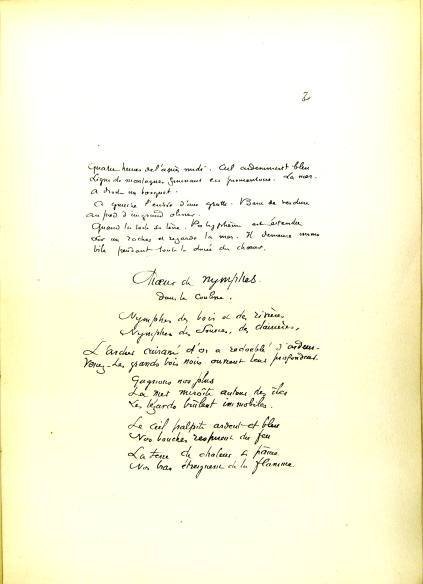 2
Quatre heures de l'après midi. Ciel ardemment bleu
Ligne de montagnes finissant en promontoire. La mer.
A droite un bosquet.
A gauche l'entrée d'une grotte. Banc de verdure
au pied d'un grand
Quand la toile se lève. Polyphème est étendu
sur un rocher et regarde la mer. Il demeure immo
bile pendant toute la durée du chœur.
Chœur de nymphes.
dans la coulisse.
Nymphes des bois et des rivières
Nymphes des sources, des clairières,
L'archer cuirassé d'or a redoublé d'ardeur
Venez. Les grands bois noirs ouvrent leur profondeur.
Gagnons nos
La mer miroite autour des îles
Les lézards brûlent immobiles.
Le ciel palpite ardent et bleu
Nos bouches respirent du feu
La terre de chaleur se pâme
Nos bras étreignent de la flamme.